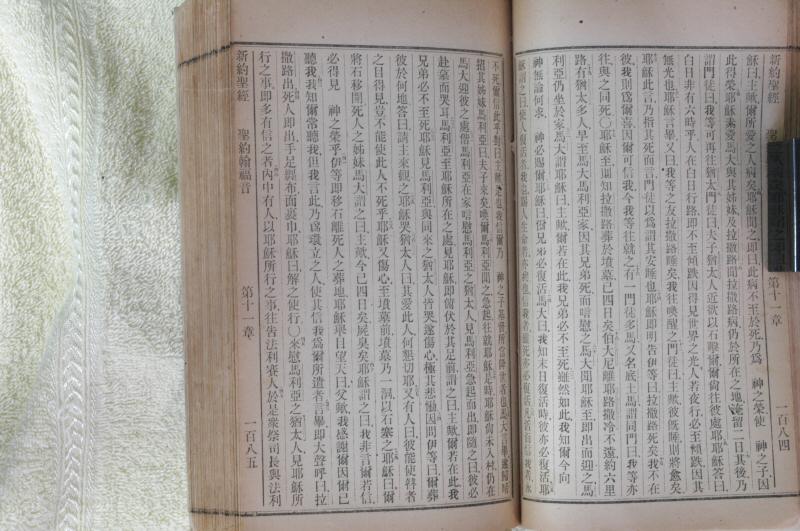 新約聖經 聖 第十一章 一百八四
穌曰主歟爾所愛之人病矣耶穌聞之即曰此病不至於死乃爲 神之榮使 神之子因
此得榮耶穌素愛馬大與其姊妹及拉撒路聞拉撒路病仍於所在之地淹留二日其後乃
謂門徒曰我等可再往猶太門徒曰夫子猶太人近欲以石擊爾爾尙往彼處耶耶穌答曰
白日非有六時乎人在白日行路即不至傾跌因得見世界之光人若夜行必至傾跌因其
無光也耶穌言畢又曰我等之友拉撒路睡矣我往喚醒之門徒曰主歟彼既睡則將愈矣
耶穌此言乃指其死而言門徒以爲謂其安睡也耶穌即明告伊等曰拉撒路死矣我不在
彼我則爲爾喜因爾可信我今我等往就之有一門徒多馬又名底土馬謂同門曰我等亦
往與之同死耶穌至則知拉撒路葬於墳墓已四日矣伯大尼離耶路撒冷不遠約六里
路有猶太多人早至馬大馬利亞家因其兄弟死而唁慰之馬大聞耶穌至即出而迎之馬
利亞仍坐於家馬大謂耶穌曰主歟爾若在此我兄弟必不至死雖然如此我知爾今向
神無論何求 神必賜爾耶穌曰爾兄弟必復活馬大曰我知末日復活時彼亦必復活耶
穌謂之曰使人復活在我也賜人生命者亦我也信我者雖死亦必復活凡活而信我者
不死爾信此乎對曰主歟 也我信爾乃 神之子基督所當降世者也馬大 畢遂歸
招其姊妹馬利亞曰夫子來矣喚爾馬利亞聞之急起往就耶穌是時耶穌尙未入村仍在
馬大迎彼之處偕馬利亞在家唁慰馬利亞之猶太人見馬利亞急起而出即隨之曰彼必
赴墓而哭耳馬利亞至耶穌所在之處見耶穌即俯伏於其足前謂之曰主歟爾若在此我
兄弟必不至死耶穌見馬利亞與同來之猶太人皆哭遂傷心極其悲慟因問伊等曰爾葬
彼於何地答曰請主來觀之耶穌哭猶太人曰其愛此人何懇切耶又有人曰彼能使瞽者
之目得見豈不能使此人不死乎耶穌又傷心至墳墓前墳墓乃一洞以石塞之耶穌曰爾
將石移開死人之姊妹馬大謂之曰主歟今已四日矣屍臭矣耶穌謂之曰我非言爾若信
必得見 神之榮乎伊等即移石離死人之葬地耶穌舉目望天曰父歟我感謝爾因爾已
聽我我知爾常聽我但我言此乃爲環立之人使其信我爲爾所遣者言畢即大聲呼曰拉
撒路出死人即出手足纏布面裹巾耶穌曰解之使行來慰馬利亞之猶太人見耶穌所
行之事即多有信之者內中有人以耶穌所行之事往告法利賽人於是衆祭司長與法利
新約聖經 聖約翰福音 第十一章 一百八五